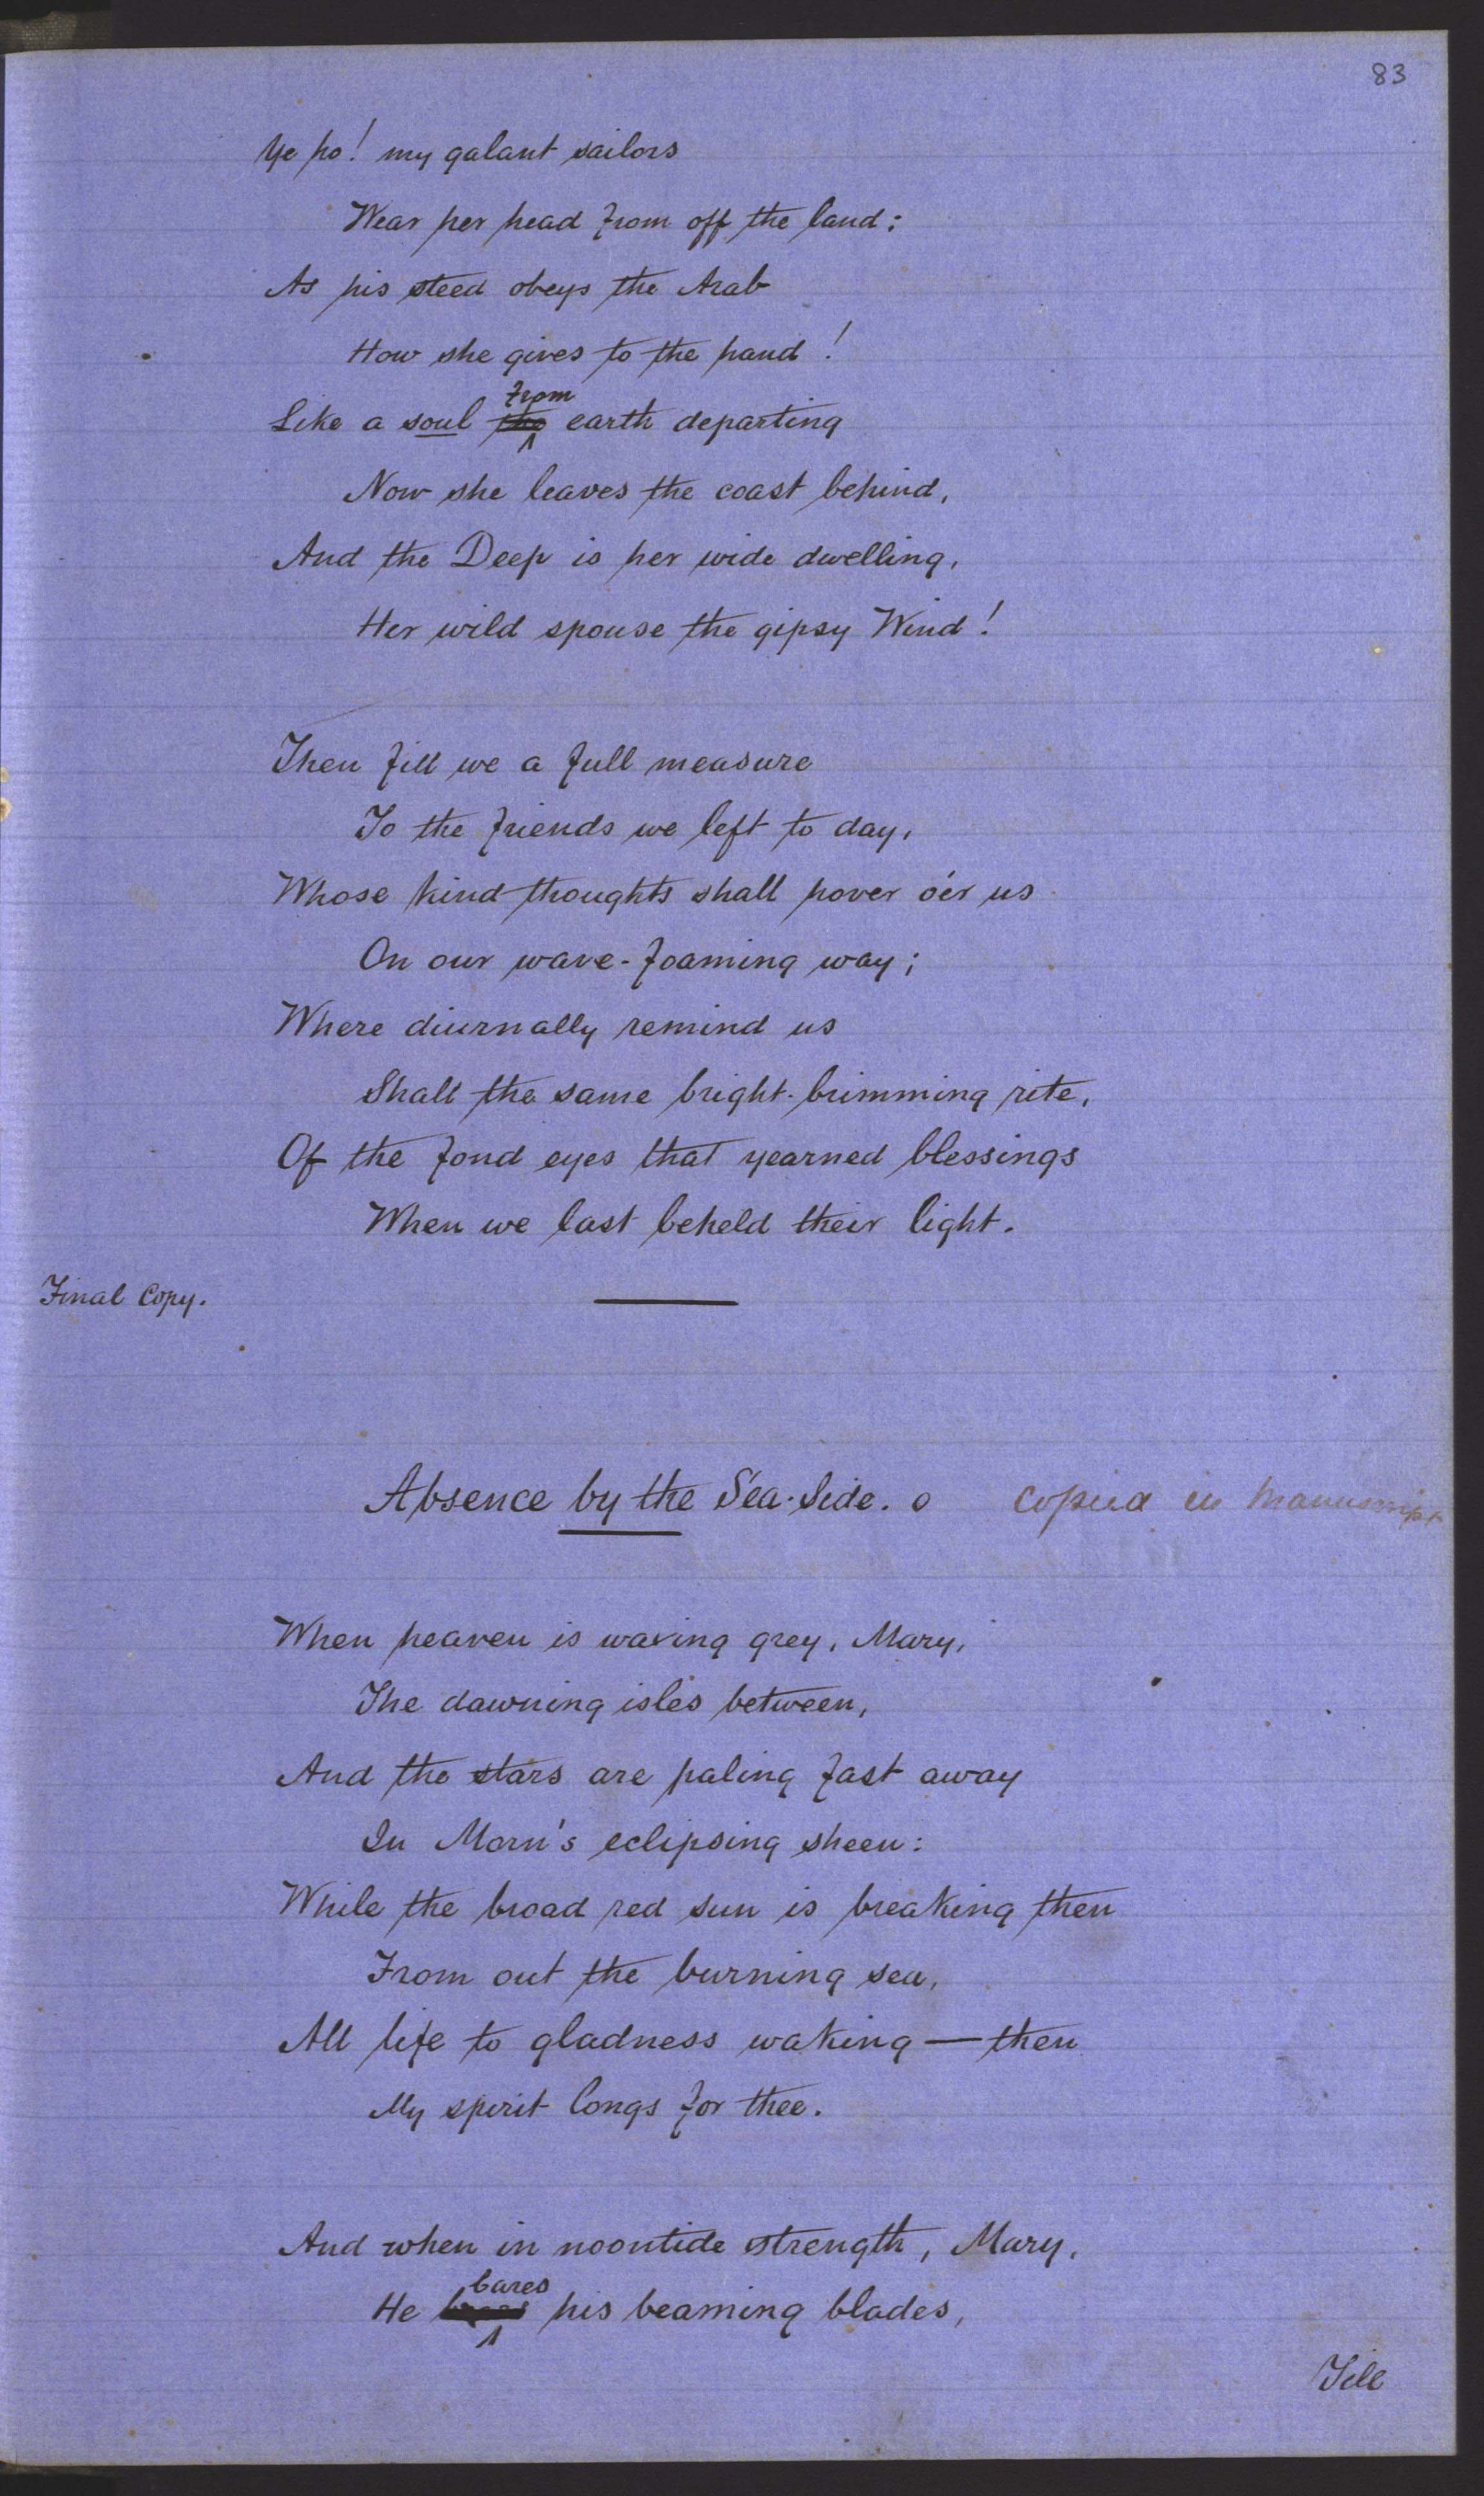 83
Ye ho! my galant sailors
Wear her head from off the land;
As his steed obeys the Arab
How she gives to the hand!
Like a soul the from earth departing
Now she leaves the coast behind,
And the Deep is her wide dwelling,
Her wild spouse the gipsy Wind!
Then fill we a full measure
To the friends we left to day,
Whose kind thoughts shall hover o'er us
On our wave-foaming way;
Where diurnally remind us
Shall the same bright-brimming rite,
Of the fond eyes that yearned blessings
When we last beheld their light.
Final Copy.
Absence by the Sea-Side. o copied in Manuscript
When heaven is waxing grey, Mary,
The dawning isles between,
And the stars are paling fast away
In Morn's eclipsing sheen:
While the broad red sun is breaking then
From out the burning sea,
All life to gladness waking—then
My spirit longs for thee.
And when in noontide strength, Mary,
He bares his beaming blades,
Till